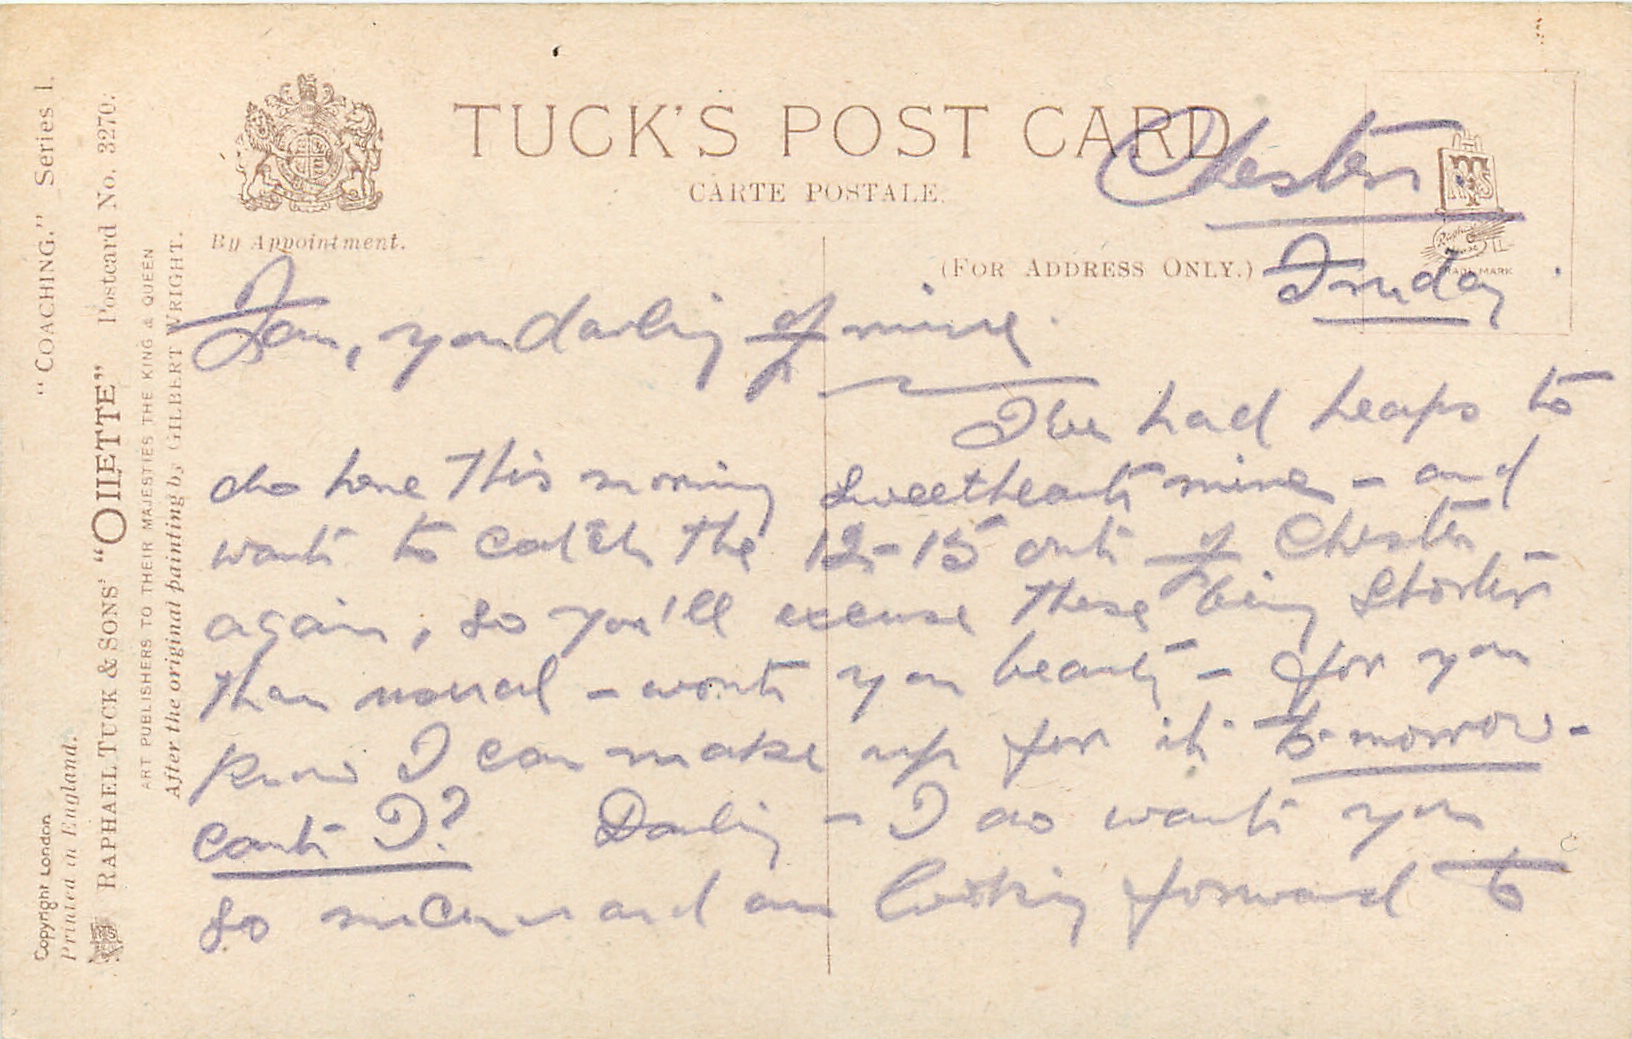 TUCK'S POST CARD
CARTE POSTALE.
By Appointment.
(FOR ADDRESS ONLY.)
TRADE MARK
"COACHING." Series I.
RAPHAEL TUCK & SONS' "OILETTE" Postcard No. 3270.
ART PUBLISHERS TO THEIR MAJESTIES THE KING & QUEEN
After the original painting by GILBERT WRIGHT.
Copyright London
Printed in England.
Chester
you darling of mine.
I've had heaps to
do here this morning sweetheart mine – and
want to catch the 12-15 out of Chester –
again, so you'll excuse these being shorter
than usual – won't you beauty – for you
know I can make up for it to-morrow –
can't I? Darling – I do want you
so much and am looking forward to